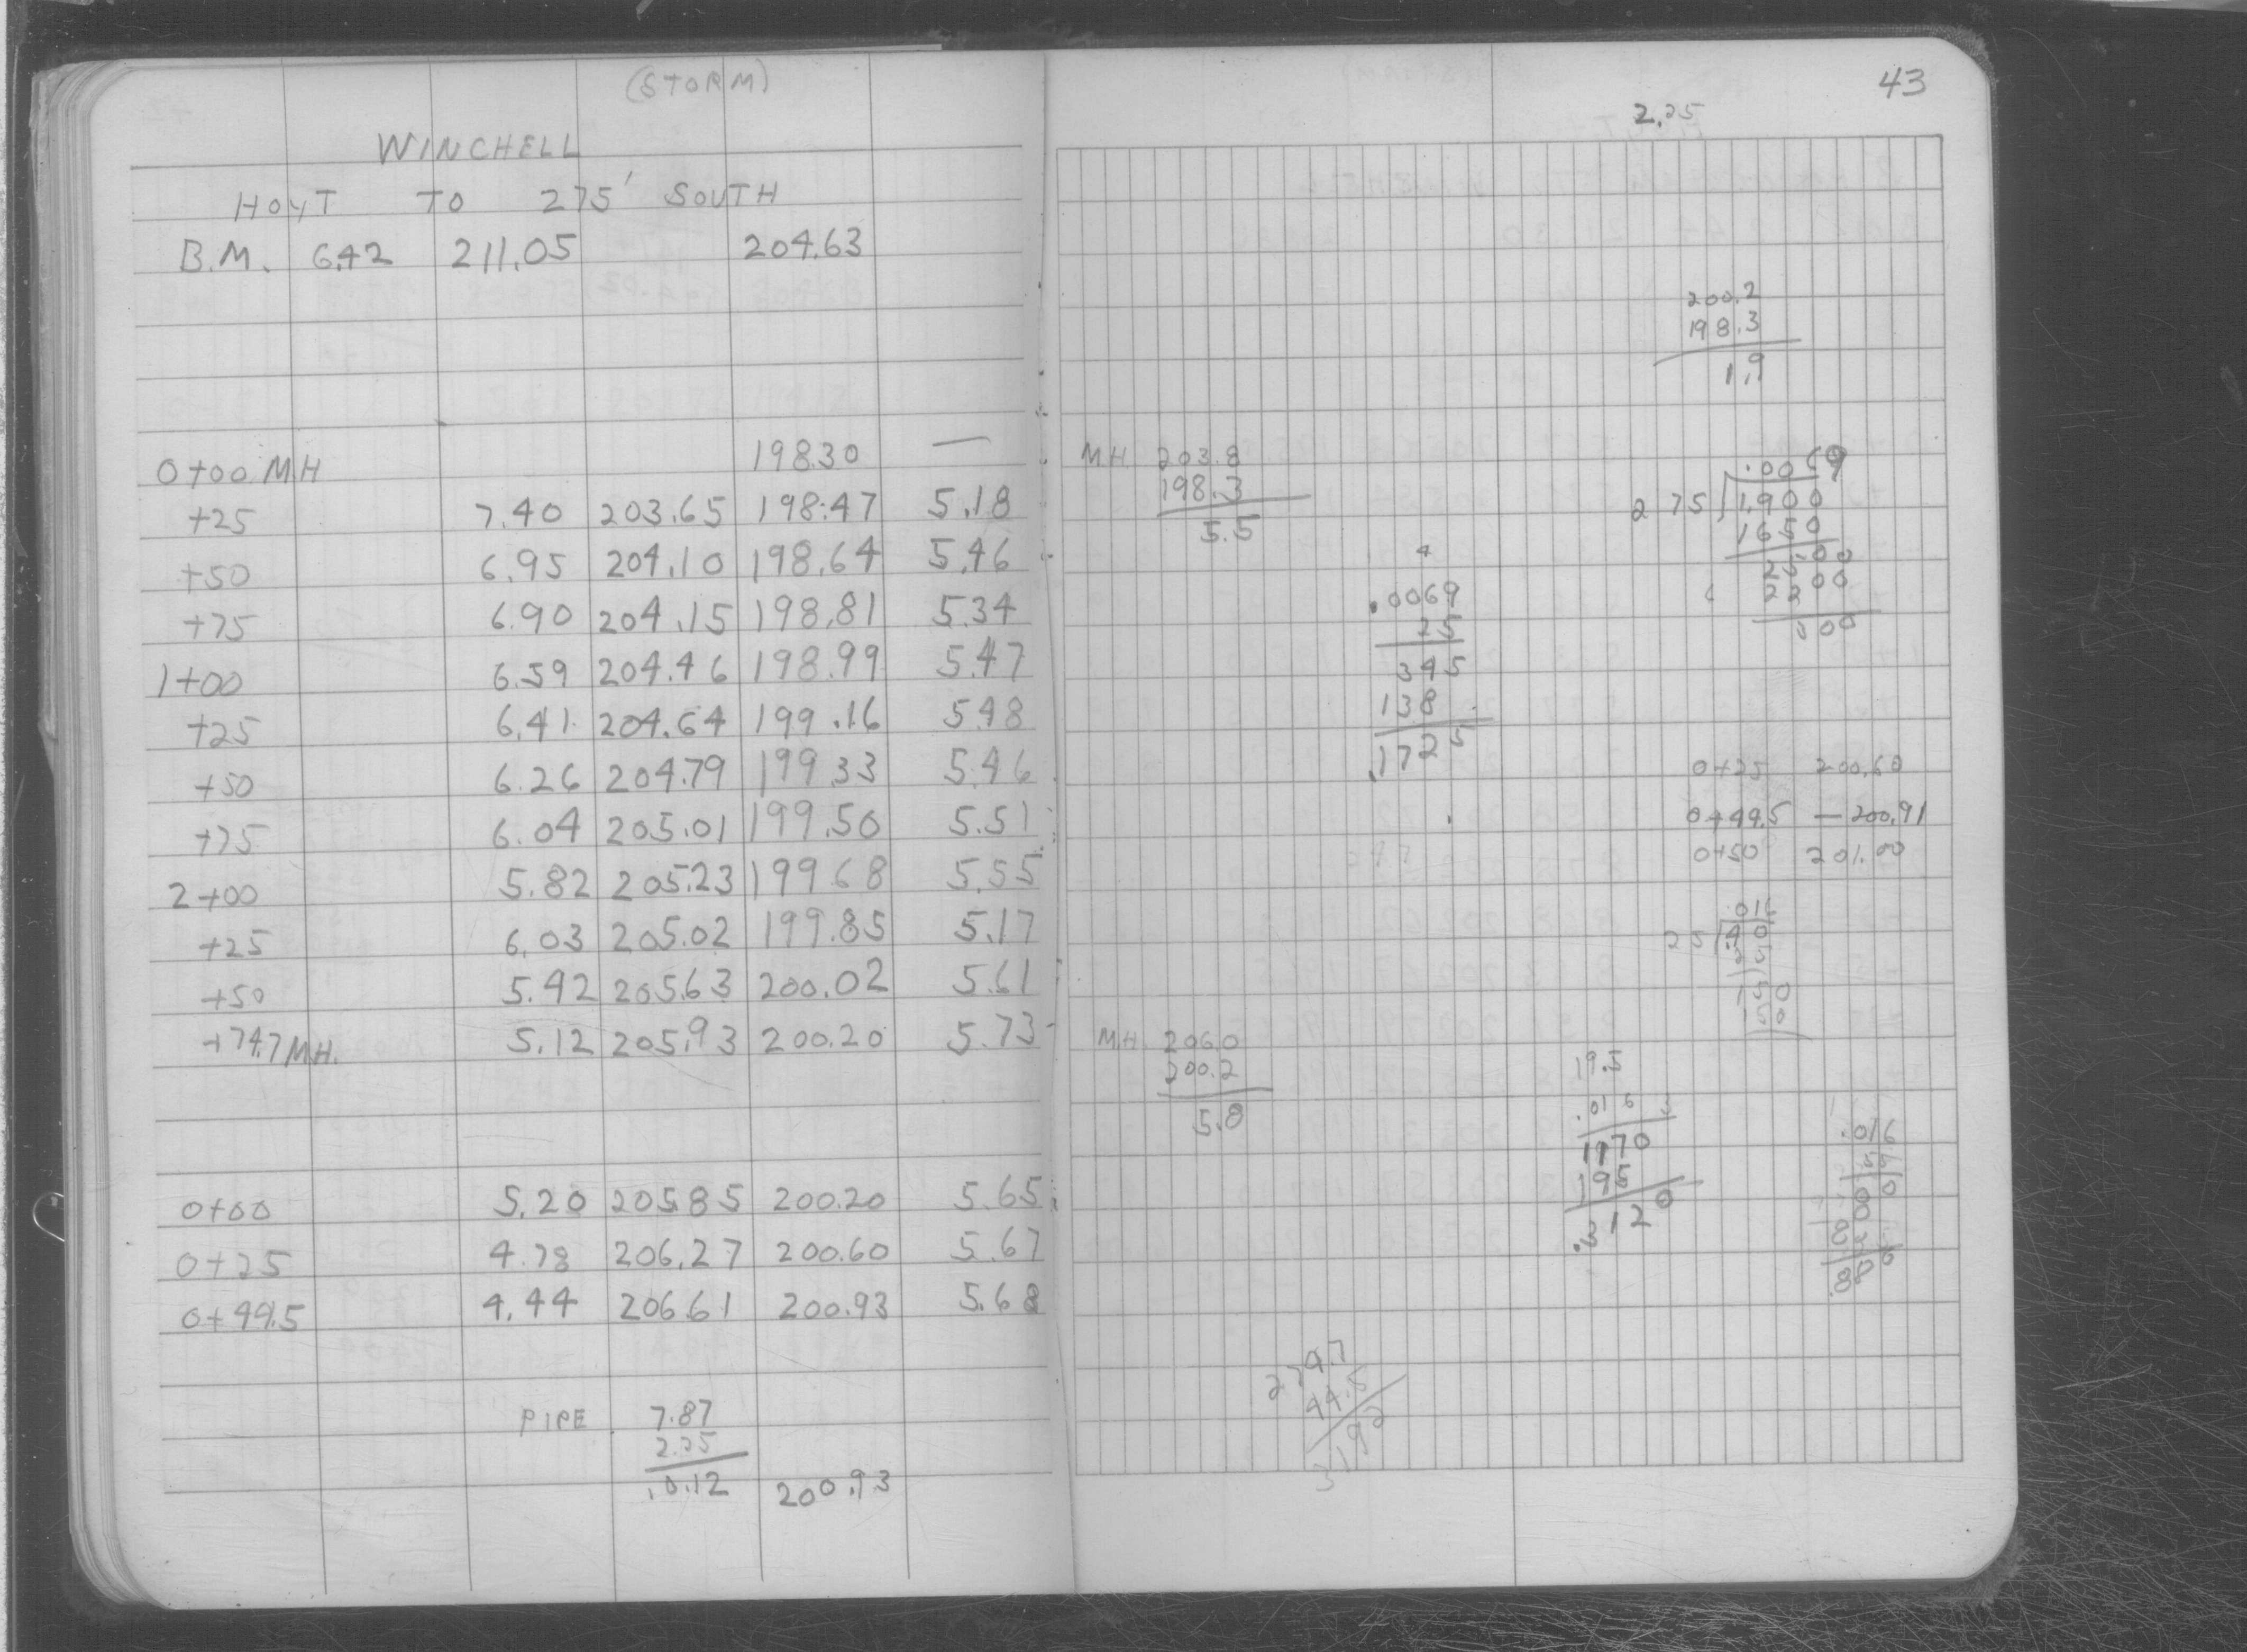 (STORM)
WINCHELL
HOYT TO 275' SOUTH
B.M. 6.42 211.05 204.63
0+00 MH 198.30 —
+25 7.40 203.65 198.47 5.18
+50 6.95 204.10 198.64 5.46
+75 6.90 204.15 198.81 5.34
1+00 6.59 204.46 198.99 5.47
+25 6.41 204.64 199.16 5.48
+50 6.26 204.79 199.33 5.46
+75 6.04 205.01 199.50 5.51
2+00 5.82 205.23 199.68 5.55
+25 6.03 205.02 199.85 5.17
+50 5.42 205.63 200.02 5.61
+74.7 M.H. 5.12 205.93 200.20 5.73
0+00 5.20 205.85 200.20 5.65
0+25 4.78 206.27 200.60 5.67
0+49.5 4.44 206.61 200.93 5.68
PIPE 7.87
2.25
10.12 200.93
43
2.25
200.2
198.3
1.9
M.H. 203.8
198.3
5.5
.0069
275 1.900
1650
2500
4
.0069
25
345
138
.1725
0+25 200.60
0+49.5 — 200.91
0+50 201.00
.016
25 .40
25
150
150
M.H. 206.0
200.2
5.8
19.5
.016
1170
195
.3120
.016
274.7
44.5
3192